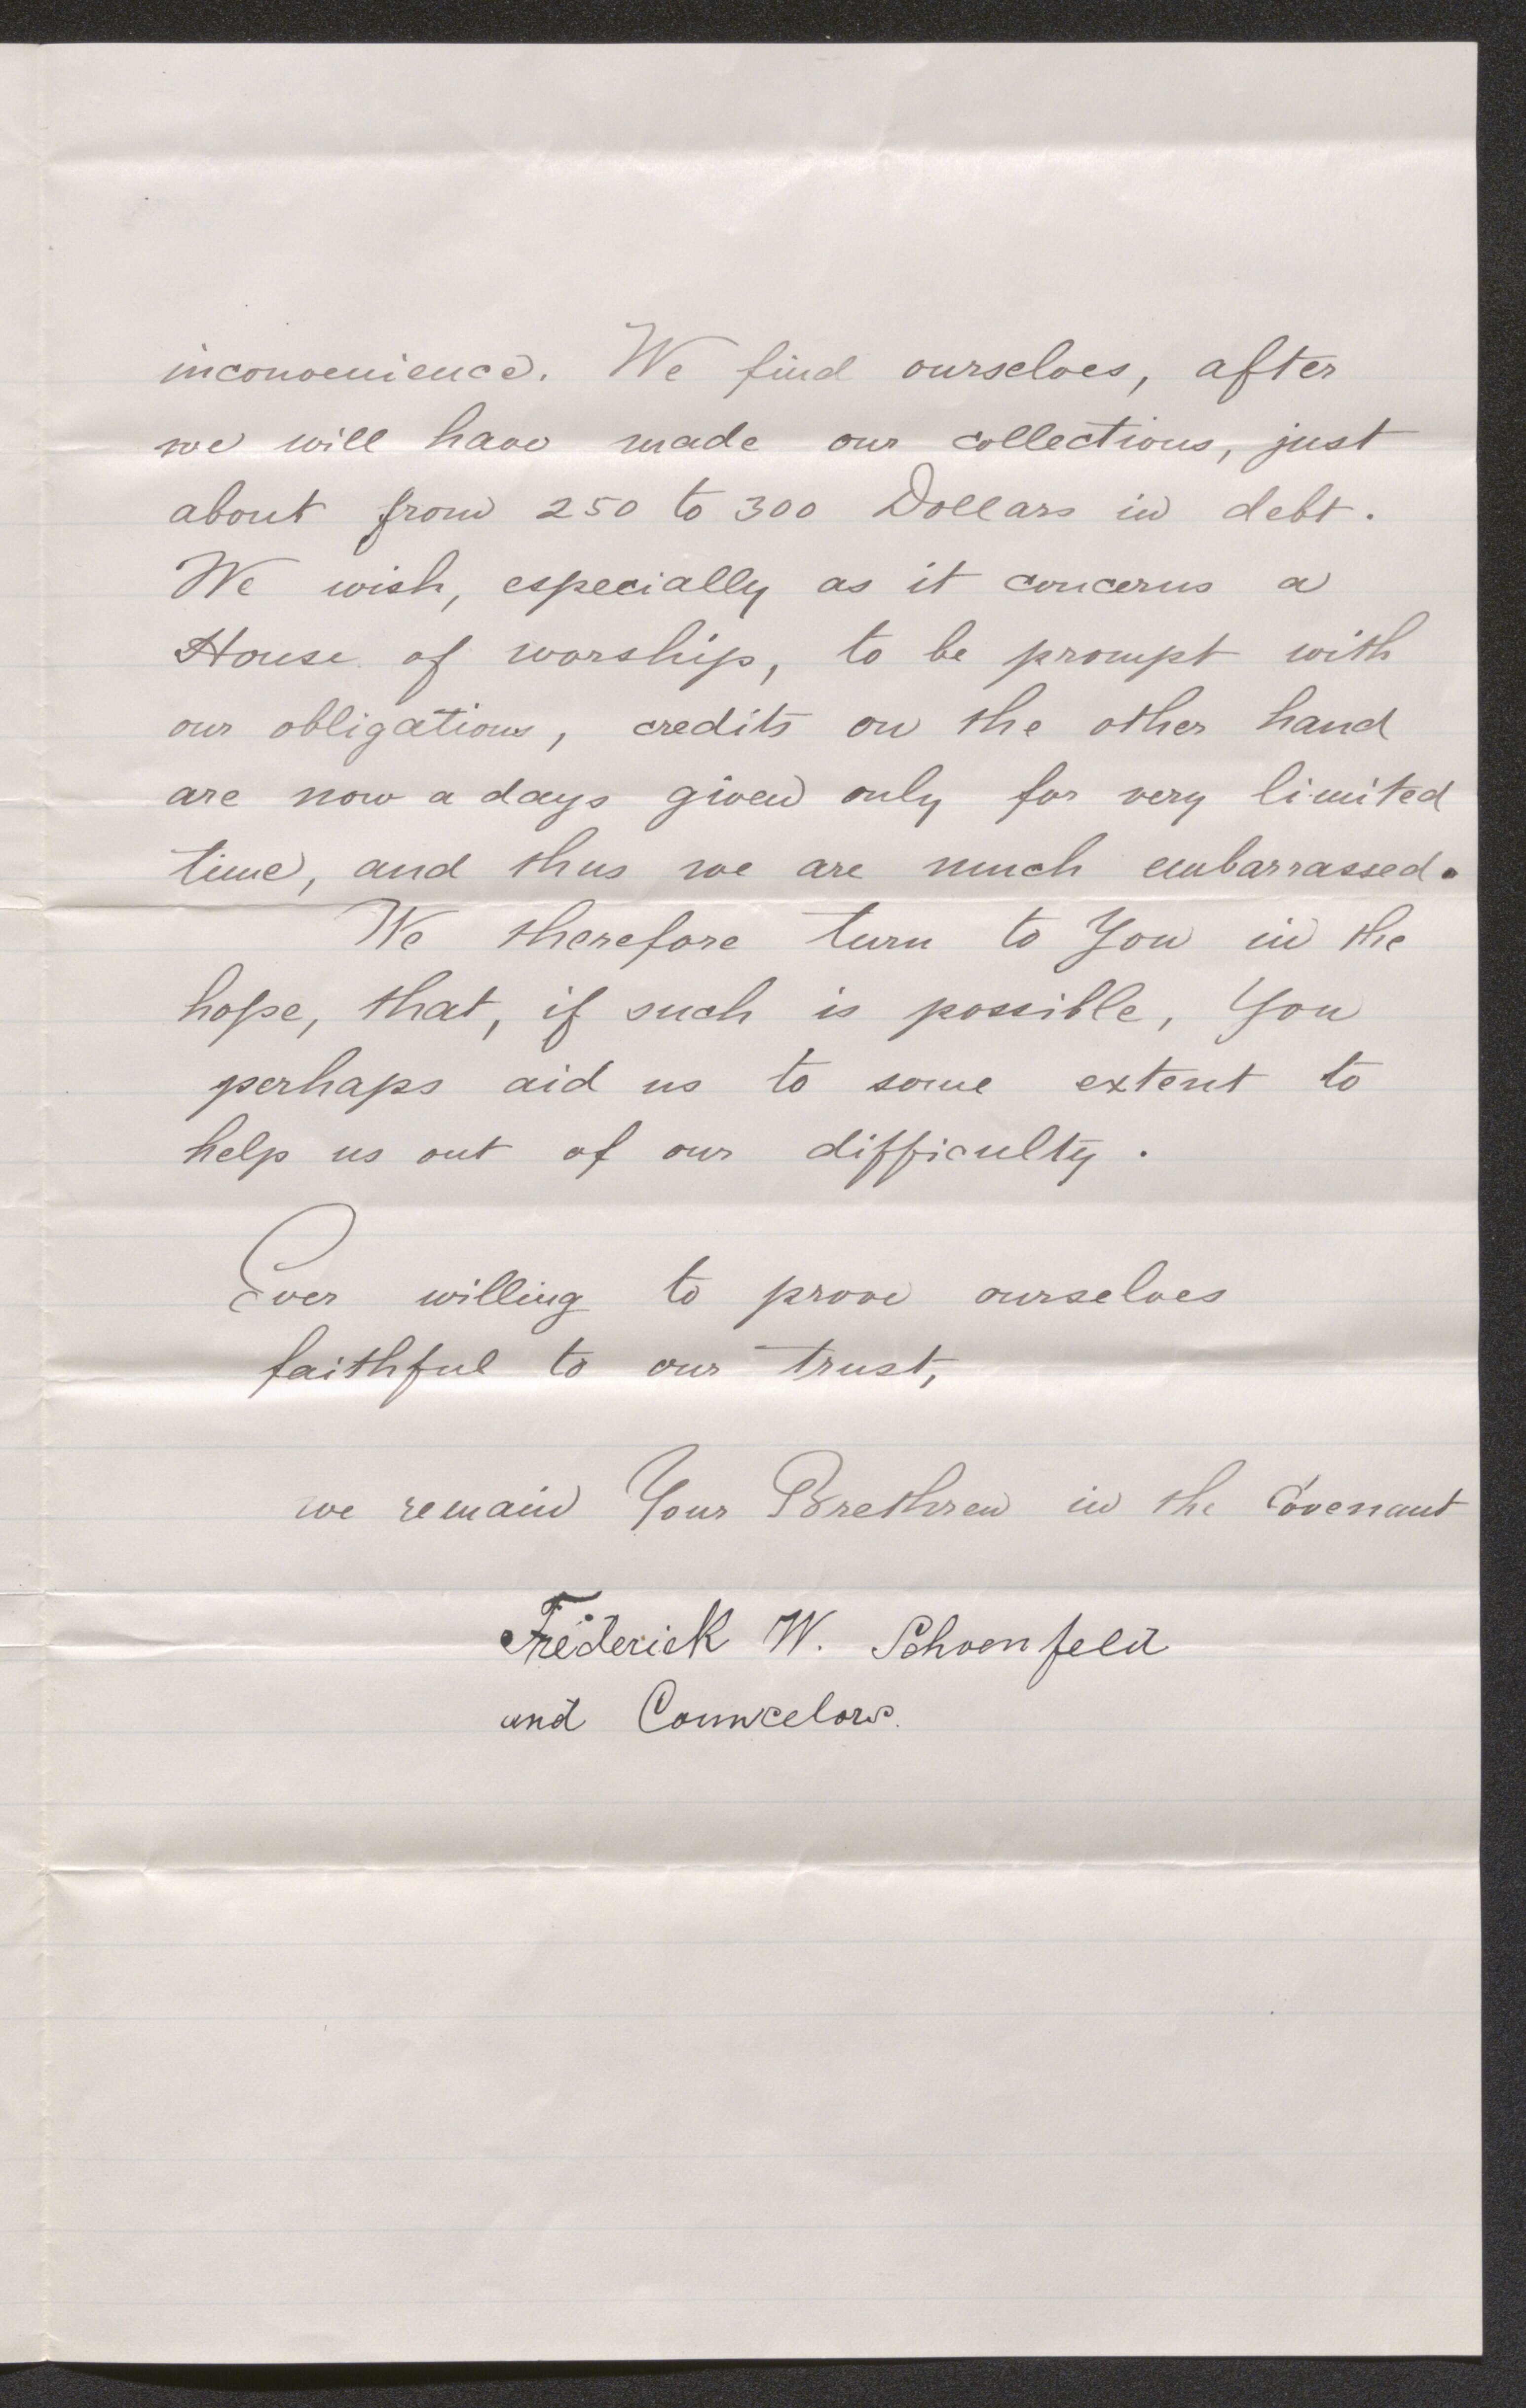 inconvenience. We find ourselves, after
we will have made our collections, just
about from 250 to 300 Dollars in debt.
We wish, especially as it concerns a
House of worship, to be prompt with
our obligations, credits on the other hand
are now a days given only for very limited
time, and thus we are much embarrassed.
We therefore turn to You in the
hope, that, if such is possible, You
perhaps aid us to some extent to
help us out of our difficulty.
Ever willing to prove ourselves
faithful to our trust,
we remain Your Brethren in the Covenant
Frederick W. Schoenfeld
and Councelors.